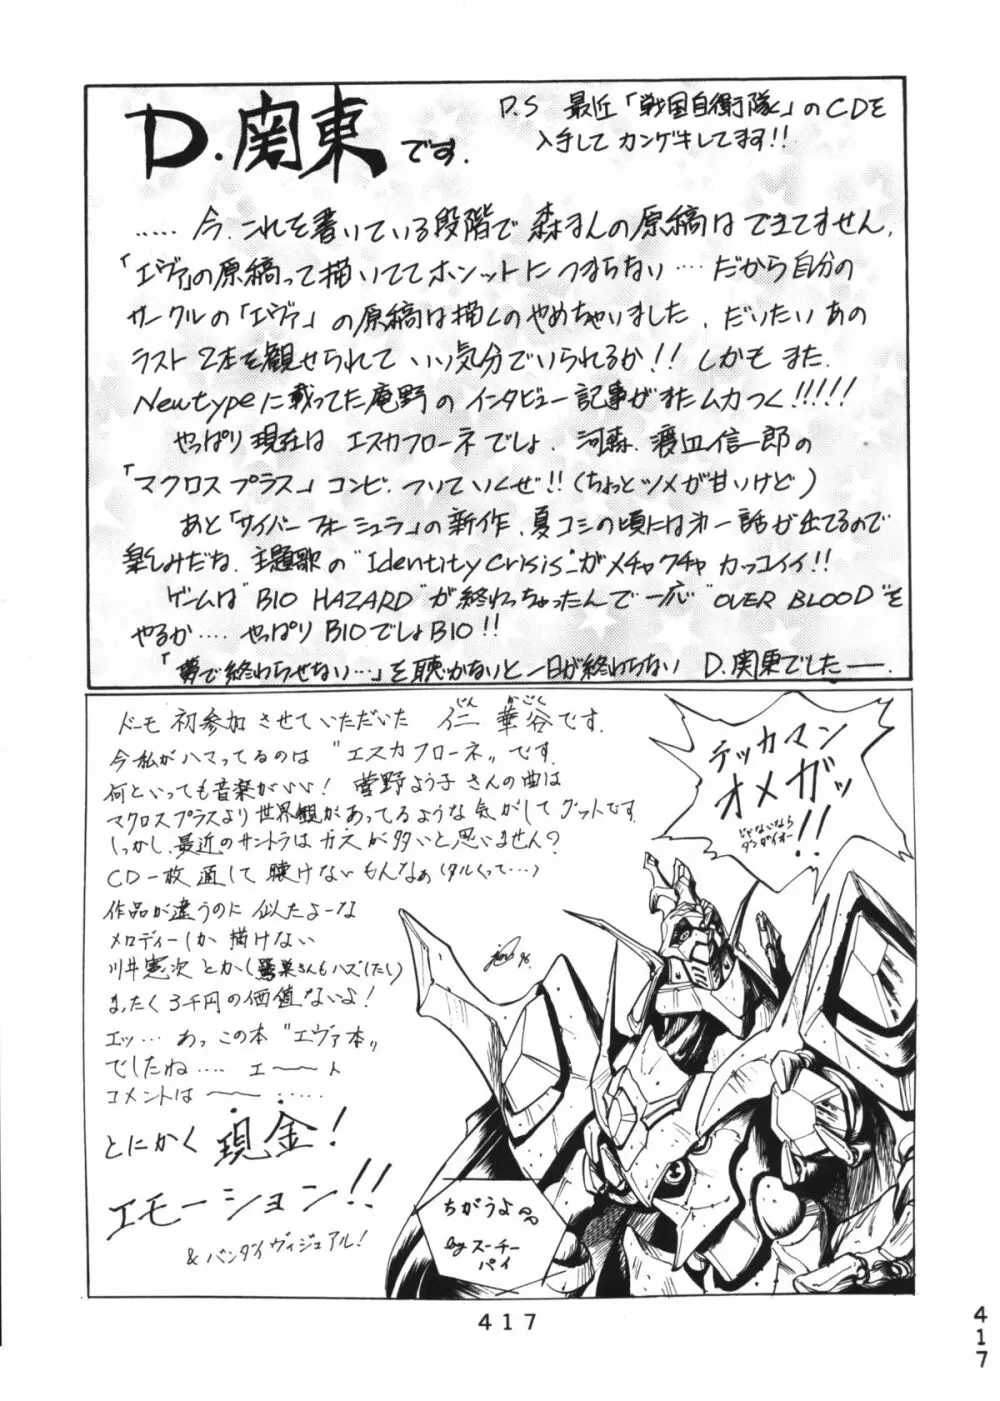 D.関東です.
P.S 最近「戦国自衛隊」のCDを
入手してカンゲキしてます!!
……今.これを書いている段階で森さんの原稿はできてません.
「エヴァ」の原稿って描いててホンットにつまらない…だから自分の
サークルの「エヴァ」の原稿は描くのやめちゃいました.だいたいあの
ラスト2本を観せられていい気分でいられるか!!しかもまた.
Newtypeに載ってた庵野のインタビュー記事がまたムカつく!!!!!
やっぱり現在はエスカフローネでしょ.河森.渡辺信一郎の
「マクロスプラス」コンビ.ついていくぜ!!(ちょっとツメが甘いけど)
あと「サイバーフォーミュラ」の新作.夏コミの頃には第一話が出てるので
楽しみだね.主題歌の"Identity Crisis"がメチャクチャカッコイイ!!
ゲームは"BIO HAZARD"が終わっちゃったんで一応"OVER BLOOD"を
やるか….やっぱりBIOでしょBIO!!
「夢で終わらせない…」を聴かないと一日が終わらない D.関東でしたー.
ドーモ初参加させていただいた仁華谷です.
じん かごく
今私がハマってるのは"エスカフローネ"です.
何といっても音楽がいい!菅野よう子さんの曲は
マクロスプラスより世界観があってるような気がしてグットです.
しかし、最近のサントラはカスが多いと思いません?
CD一枚通して聴けないもんなぁ(タルくって…)
作品が違うのに似たよーな
メロディーしか描けない
川井憲次とかく鷺巣さんもハズしたし)
まったく3千円の価値ないよ!
エッ…あっこの本"エヴァ本"
でしたね…. エ〜〜ト
コメントは〜〜……
とにかく現金!
エモーション!!
&バンダイヴィジュアル!
テッカマン
オメガッ!!
じゃないなら
ダンガイオー
96.
ちがうよ
by スーチー
パイ
417
417